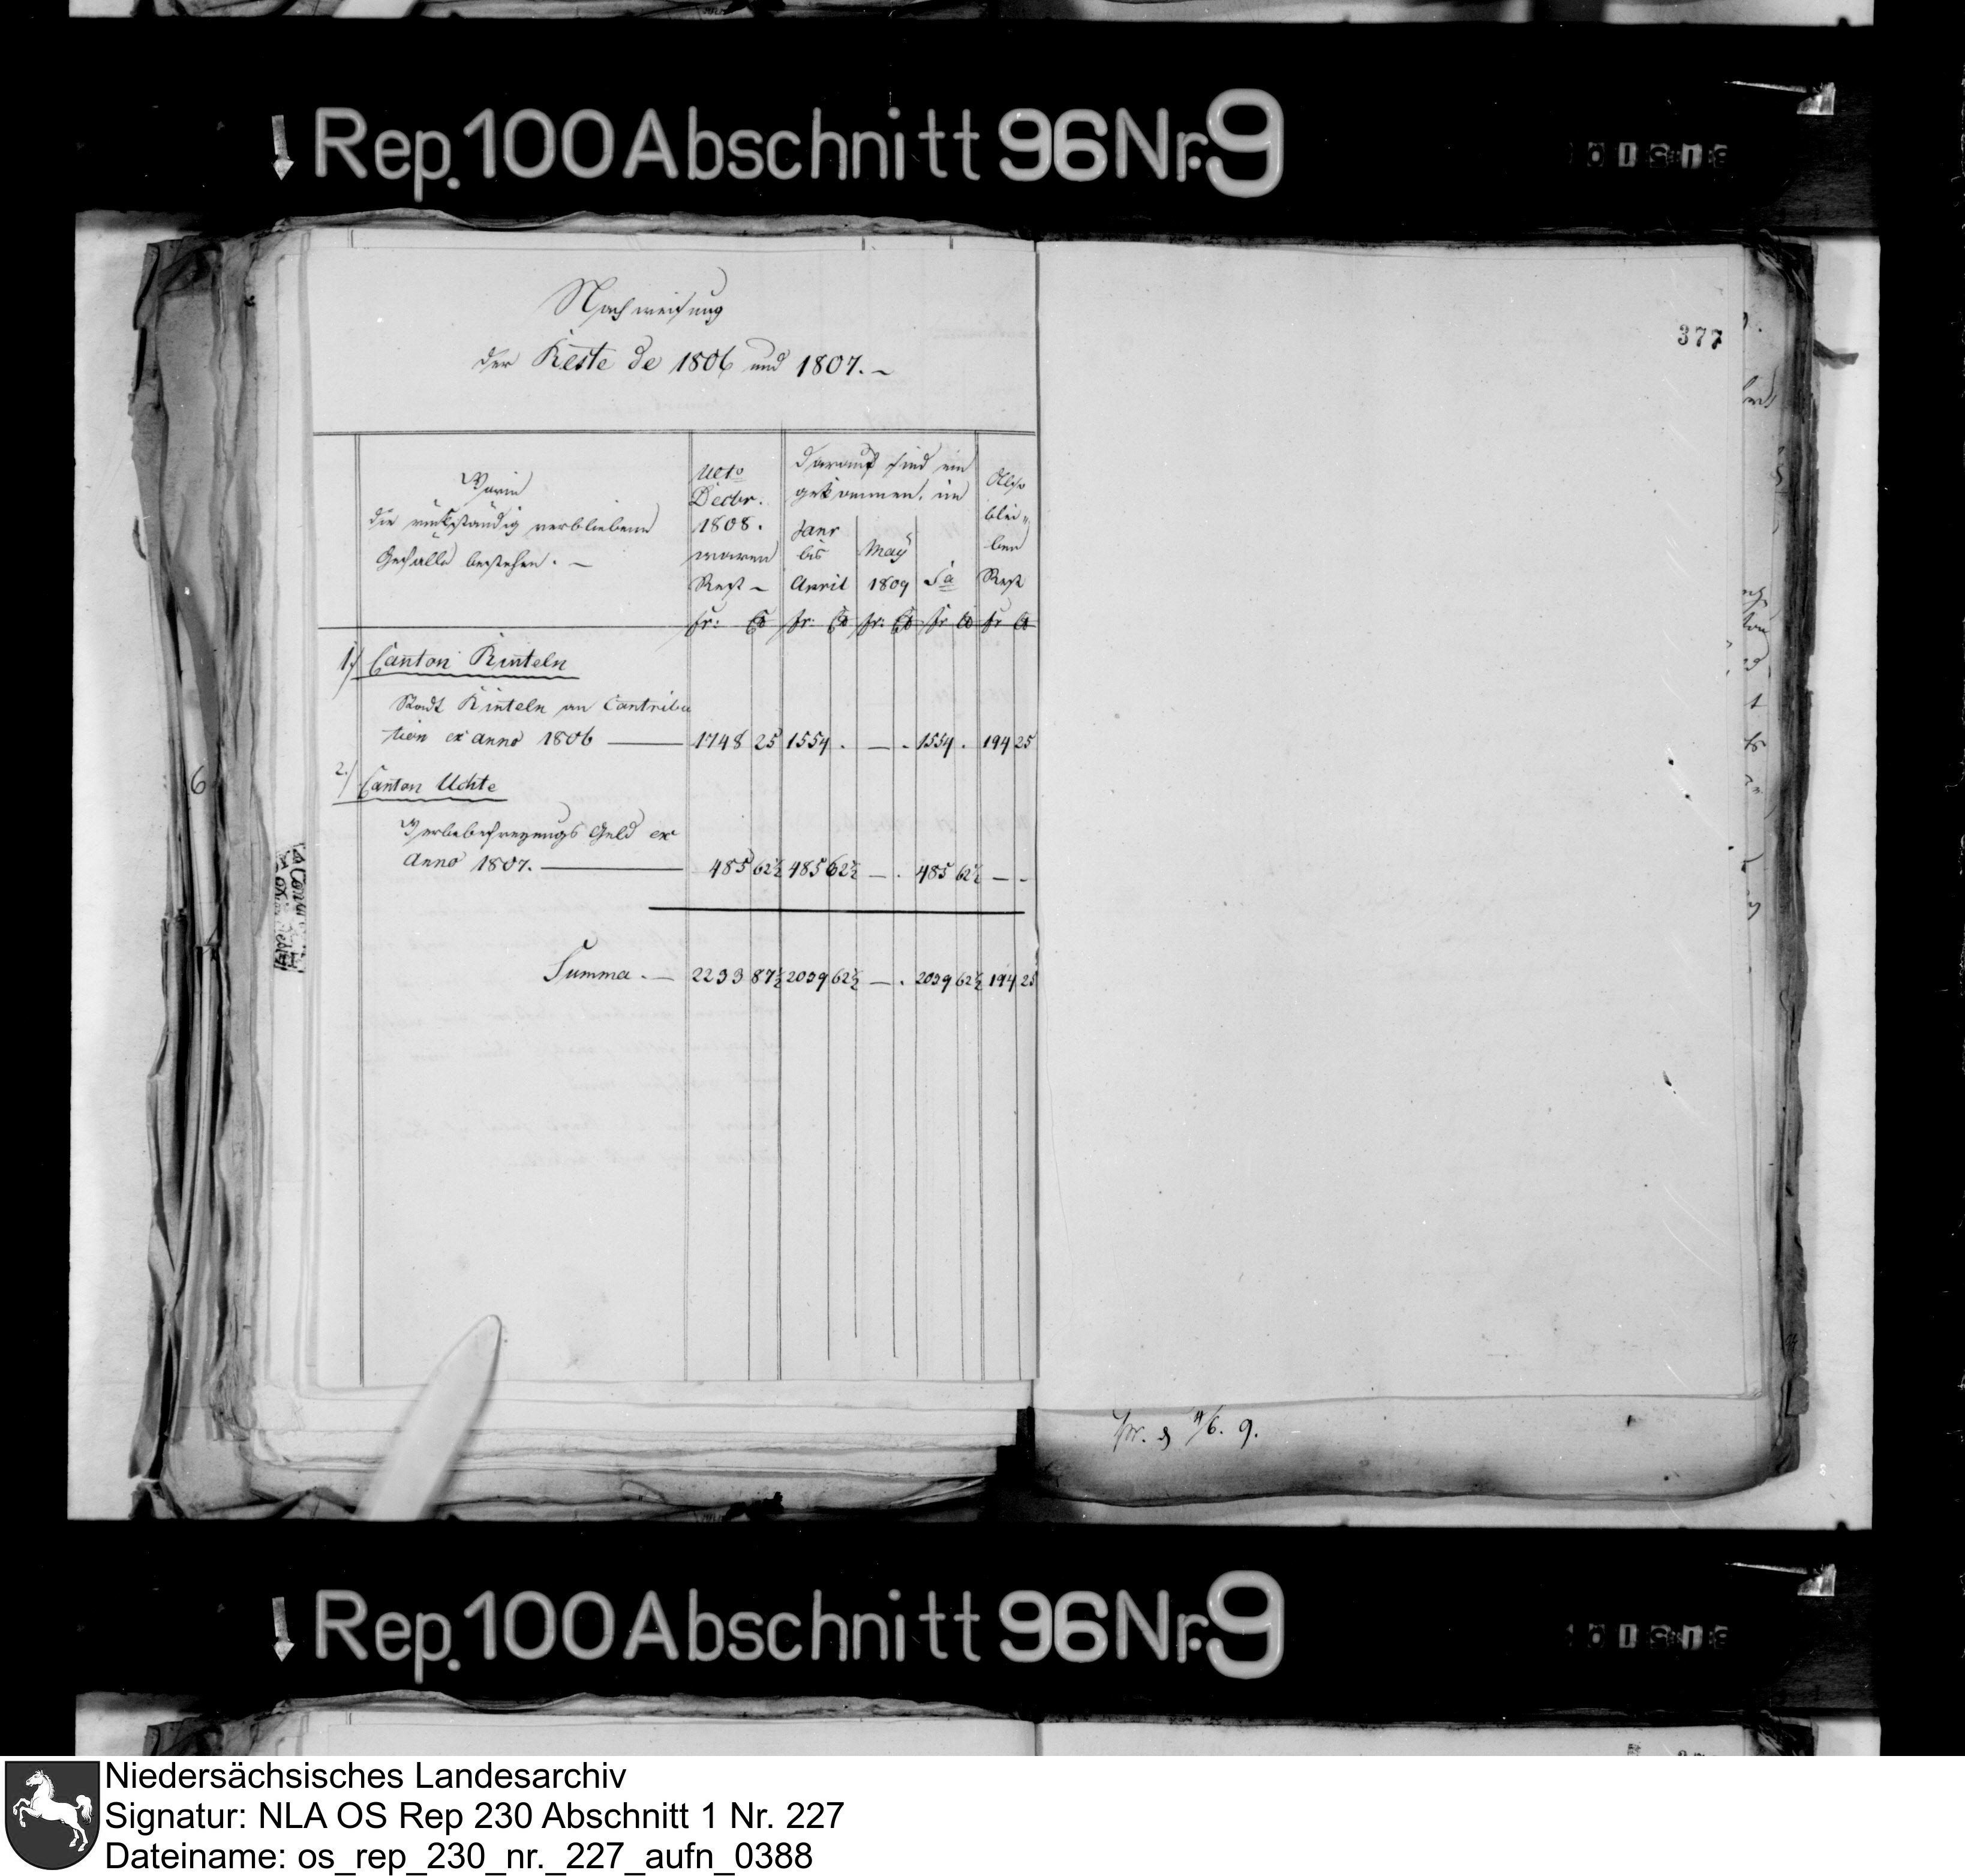 Rep. 100 Abschnitt 96 Nr. 9
Nachweisung
der Reste de 1806 und 1807. –
377
Worin
die rückständig verbliebene
Gefälle bestehen. –
Ult°
Decbr.
1808.
waren
Rest –
darauf sind ein
gekommen, im
Janr
bis
April
May
1809
Sa
Also
blei„
ben
Rest
fr: Ct fr: Ct fr: Ct fr Ct fr Ct
1./ Canton Rinteln
Stadt Rinteln an Contribu
tion ex anno 1806 — 1748 25 1554 . — . 1554 . 194 25
2./ Canton Uchte
Geld ex
Anno 1807. — 485 62½ 485 62½ — . 485 62½ — -
Summa. — 2233 87½ 2039 62½ — . 2039 62½ 194 25
6
/6. 9.
Rep. 100 Abschnitt 96 Nr. 9
Niedersächsisches Landesarchiv
Signatur: NLA OS Rep 230 Abschnitt 1 Nr. 227
Dateiname: os_rep_230_nr._227_aufn_0388